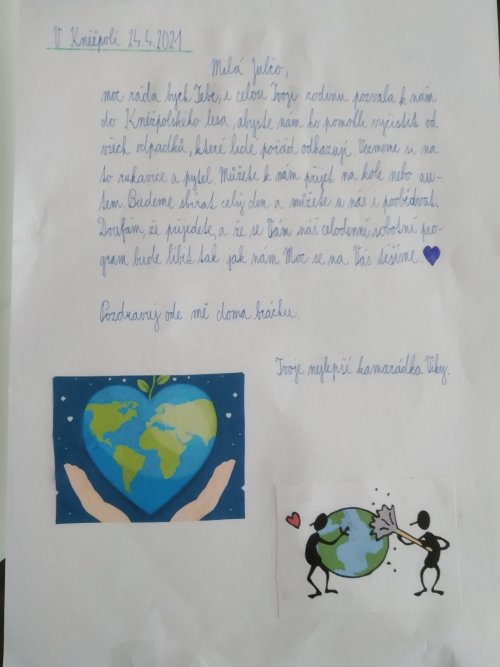 V Kněžpoli 24.4.2021
Milá Julčo,
moc ráda bych Tebe, i celou Tvoje rodinu pozvala k nám
do Kněžpolského lesa, abyste nám ho pomohli vyčistit od
všech odpadků, které lidé pořád odhazují. Vezmeme si na
to rukavice a pytel. Můžete k nám přijet na kole nebo au-
tem. Budeme sbírat celý den a můžete u nás i poobědvat.
Doufám, že přijedete, a že se Vám náš celodenní sobotní pro-
gram bude líbit tak jak nám. Moc se na Vás těšíme
Pozdravuj ode mě doma bráchu.
Tvoje nejlepší kamarádka Viky.